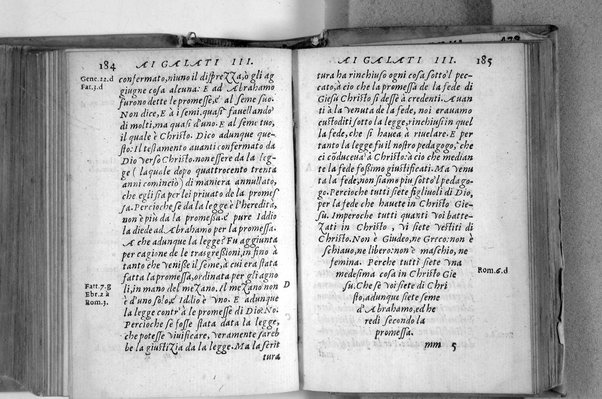 184 AI GALATI III.
Gene.22.d
Fat.3.d
confermato, niuno il disprezza, ò gli ag
giugne cosa alcuna: E ad Abrahamo
furono dette le promesse, & al seme suo.
Non dice, E à i semi, quasi fauellando
di molti, ma quasi d'uno. E al seme tuo,
il quale è Christo. Dico adunque que-
sto: Il testamento auanti confermato da
Dio verso Christo, non essere da la leg-
ge (laquale dopo quattrocento trenta
anni cominciò) di maniera annullato,
che egli sia per lei priuato de la promes-
sa. Percioche se da la legge è l'heredità,
non è più da la promessa. E pure Iddio
la diede ad Abrahamo per la promessa.
A che adunque la legge? Fu aggiunta
per cagione de le trasgressioni, in fino à
tanto che venisse il seme, à cui era stata
fatta la promessa, ordinata per gli agno
li, in mano del mezano. Il mezano non
è d'un solo, & Iddio è vno. E adunque
la legge contr'à le promesse di Dio? No.
Percioche se fosse stata data la legge,
che potesse viuificare, veramente sareb
be la giustizia da la legge. Ma la scrit
tura
Fatt.7.g
Ebr.2.à
Rom.3.
D
AI GALATI III. 185
tura ha rinchiuso ogni cosa sotto'l pec-
cato, à cio che la promessa de la fede di
Giesu Christo si desse à credenti. Auan
ti à la venuta de la fede, noi erauamo
custoditi sotto la legge, rinchiusi in quel
la fede, che si haueua à riuelare. E per
tanto la legge fu il nostro pedagogo, che
ci cōduceua à Christo: à cio che median
te la fede fossimo giustificati. Ma venu
ta la fede, non siamo piu sotto'l pedago-
go. Percioche tutti siete figliuoli di Dio,
per la fede che hauete in Christo Gie-
su. Imperoche tutti quanti voi batte-
zati in Christo, vi siete vestiti di
Christo. Non è Giudeo, ne Greco: non è
schiauo, ne libero: non è maschio, ne
femina. Perche tutti siete vna
medesima cosa in Christo Gie
su. Che se voi siete di Chri
sto, adunque siete seme
d'Abrahamo, ed he
redi secondo la
promessa.
Rom.6.d
mm 5